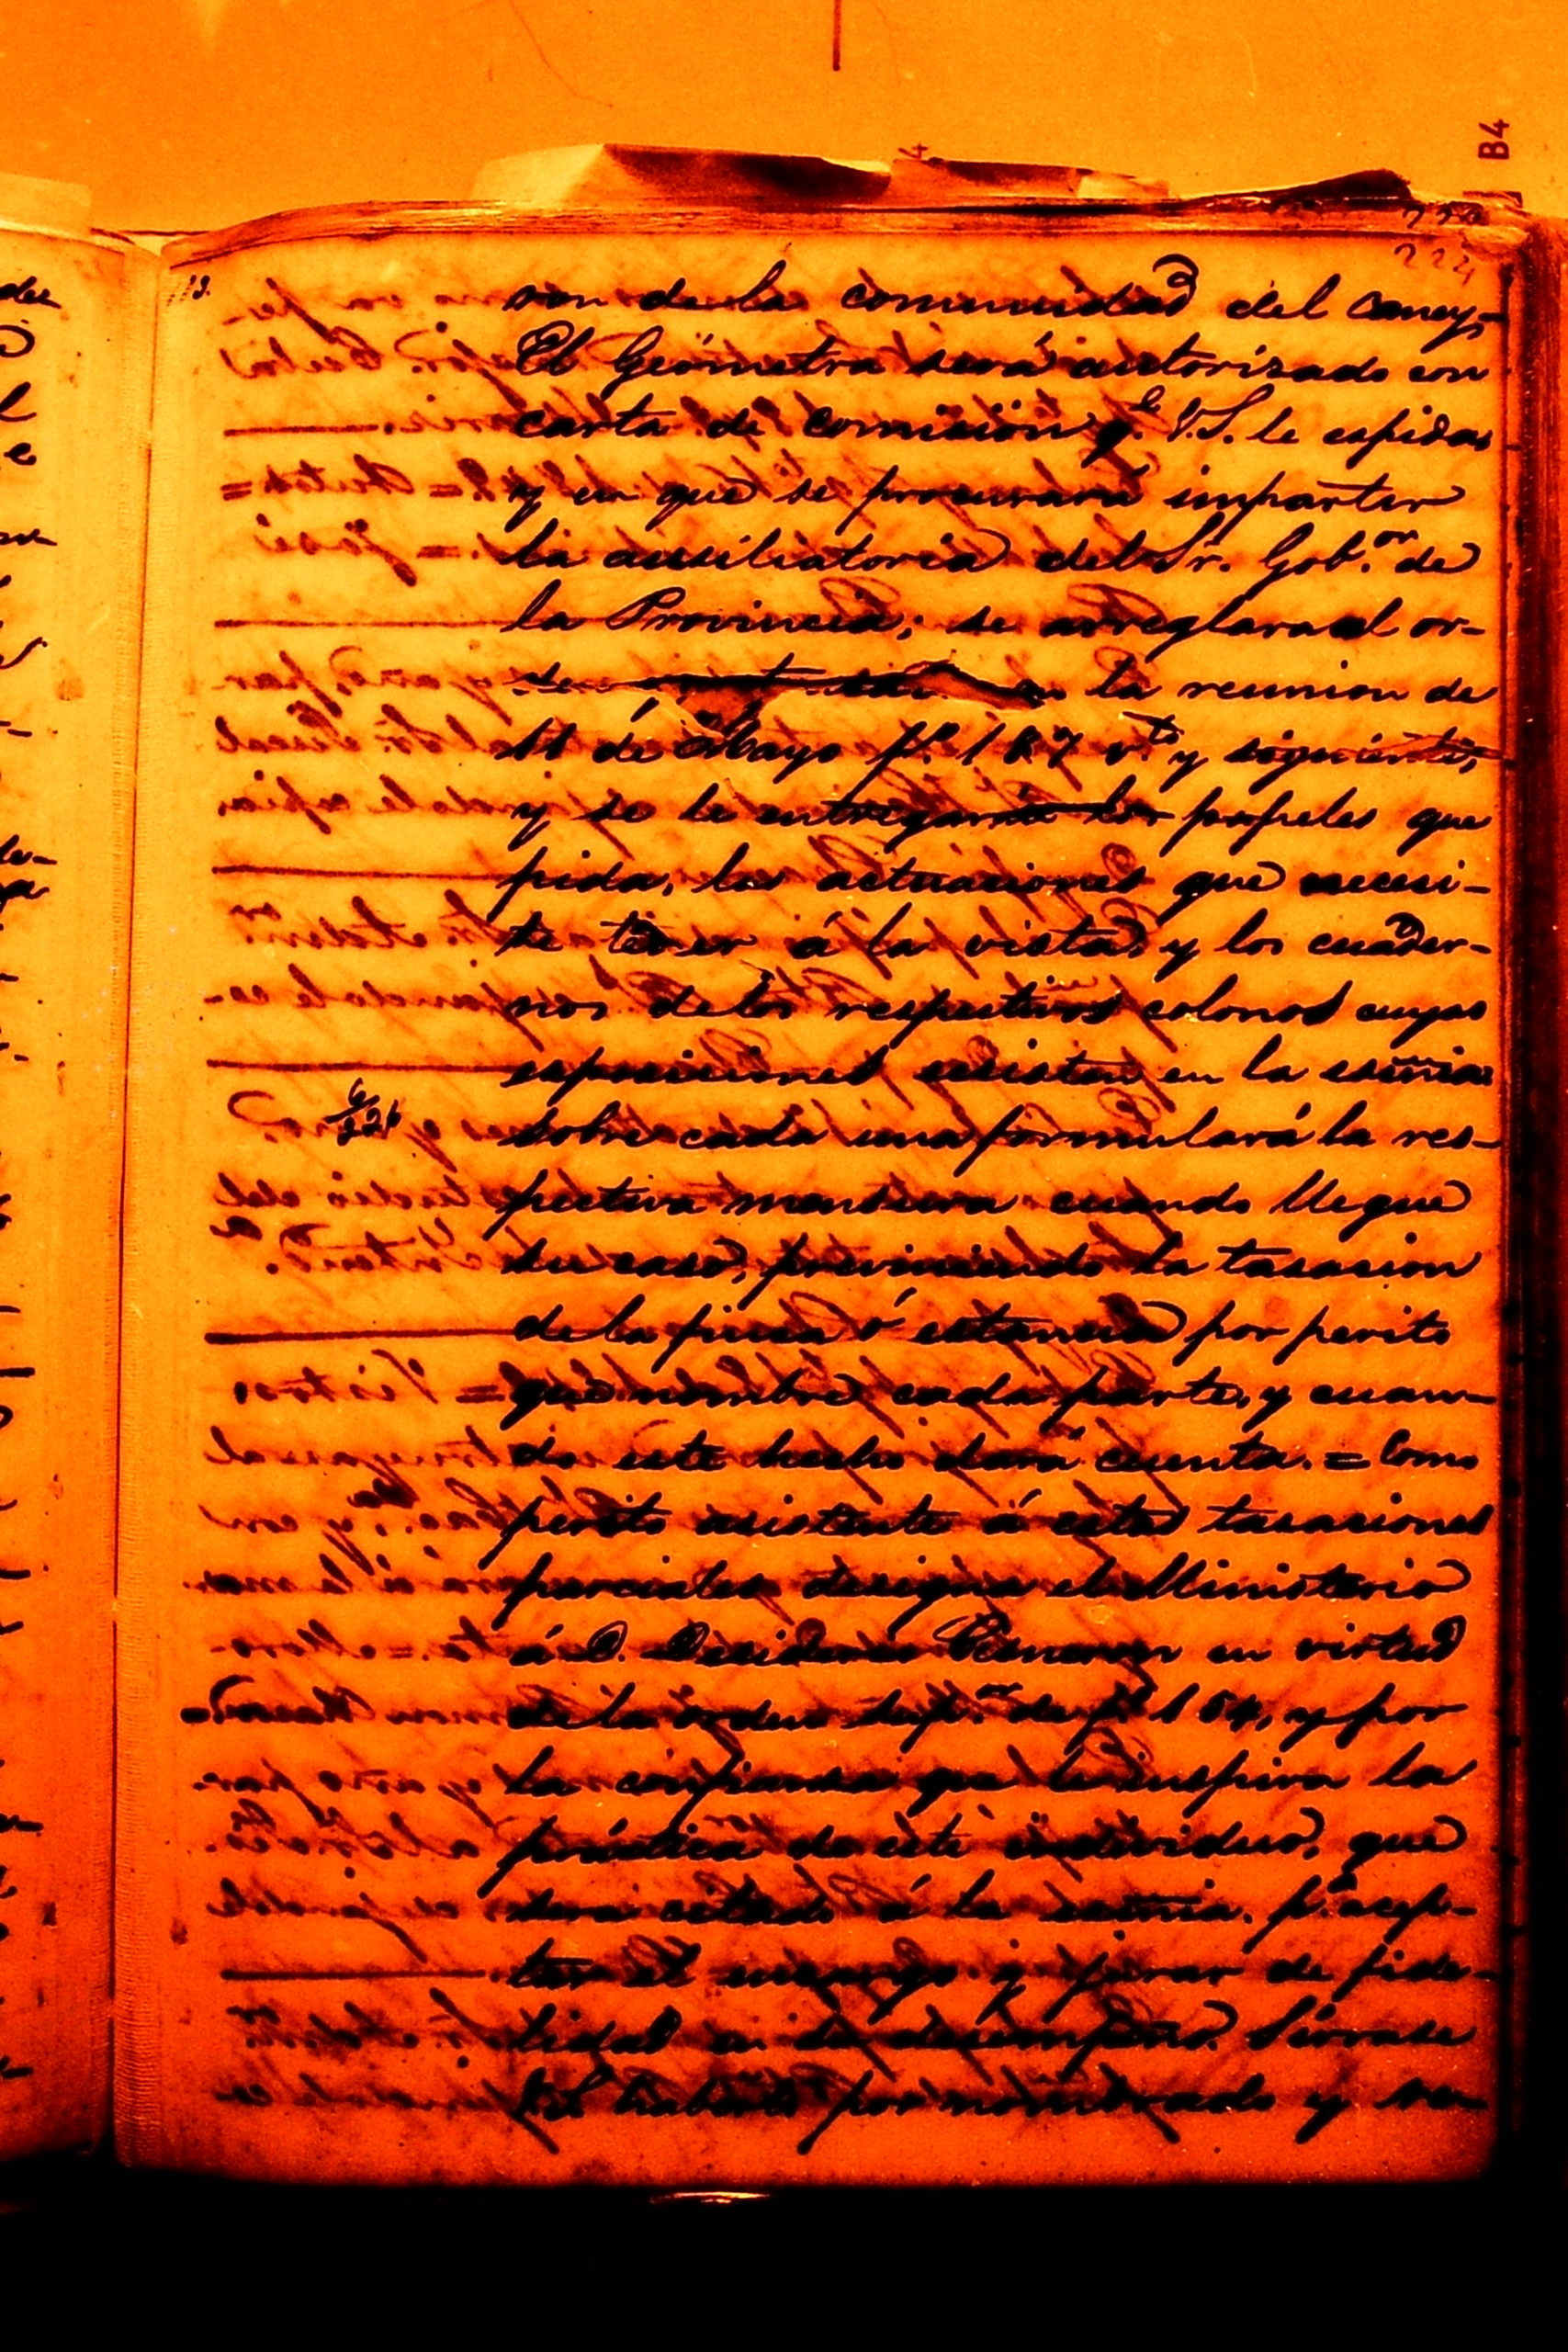 B4
224
son de la comunidad del Caney,
El Geómetra será autorizado con
carta de comision q.e V.S. le espida
y en que se procurará impartir
la ausiliatoria del Sr. Gob.or de
la Provincia; se arreglara al or-
den en la reunion de
11 de Mayo f.s 187 v.to y siguiente,
y se le entregarán los papeles que
pida, las actuaciones que necesi-
te tener á la vista, y los cuader-
nos de los respectivos colonos cuyas
esposiciones esistan en la esnia
sobre cada una formulará la res-
pectiva mensura cuando llegue
su caso, previniendo la tasacion
de la finca ó estancia por perito
que nombre cada parte, y cuan-
do este hecho dará cuenta. = Como
perito asistente á estas tasaciones
parciales designa el Ministerio
á D. Desiderio en virtud
de la orden sup.or de f.s 164, y por
la confianza que le inspira la
práctica de este individuo, que
será citado á la esnia. p.a acep-
tar el encargo y jurar de fide-
lidad en su desempeño. Sirvase
V.S. haberlo por nombrado y